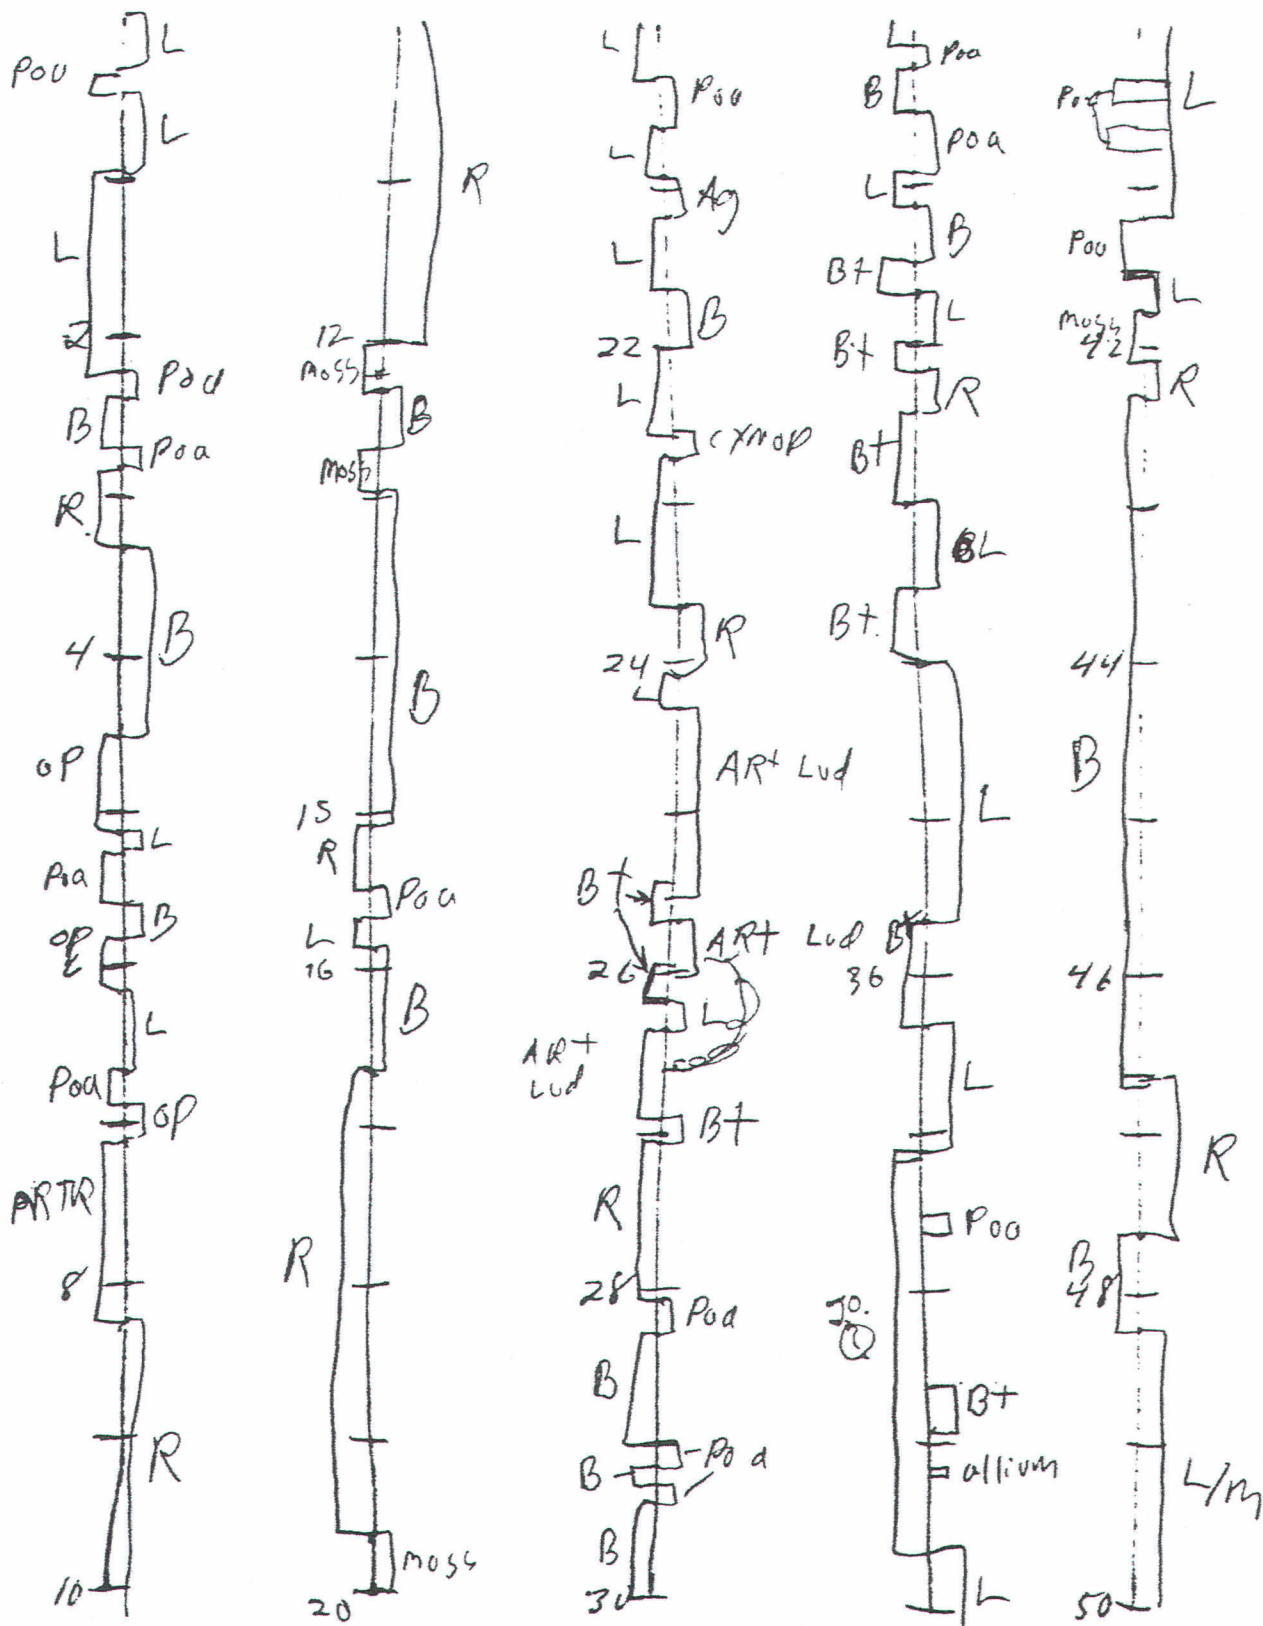 L
Poa
L
L
2
Poa
B
Poa
R
4
B
OP
L
Poa
B
OP
L
Poa
OP
ARTR
8
R
10
R
12
Moss
B
Moss
B
15
R
Poa
L
16
B
R
Moss
20
L
Poa
L
Ag
L
B
22
L
L
R
24
L
AR+ Lud
B+
AR+ Lud
26
L
AR+
Lud
B+
R
28
Poa
B
Poa
B
B
30
L
Poa
B
Poa
L
B
B+
L
B+
R
B+
L
B+
L
B+
36
L
Poa
B+
allium
L
Poa
L
Poa
L
Moss
42
R
44
B
46
R
B
48
L/m
50